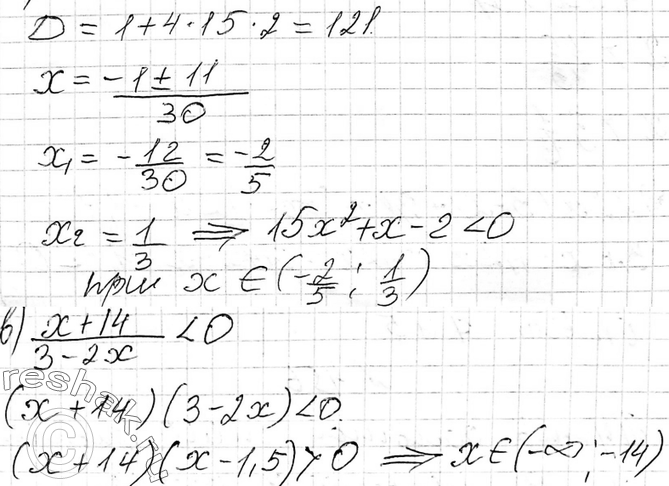 D = 1+4·15·2 = 121.
x = (-1 ± 11)/30
x₁ = -12/30 = -2/5
x₂ = 1/3 ⇒ 15x²+x-2<0
при x ∈ (-2/5; 1/3)
в) (x+14)/(3-2x) <0
(x+14)(3-2x)<0.
(x+14)(x-1,5)>0 ⇒ x∈(-∞; -14)
reshak.ru